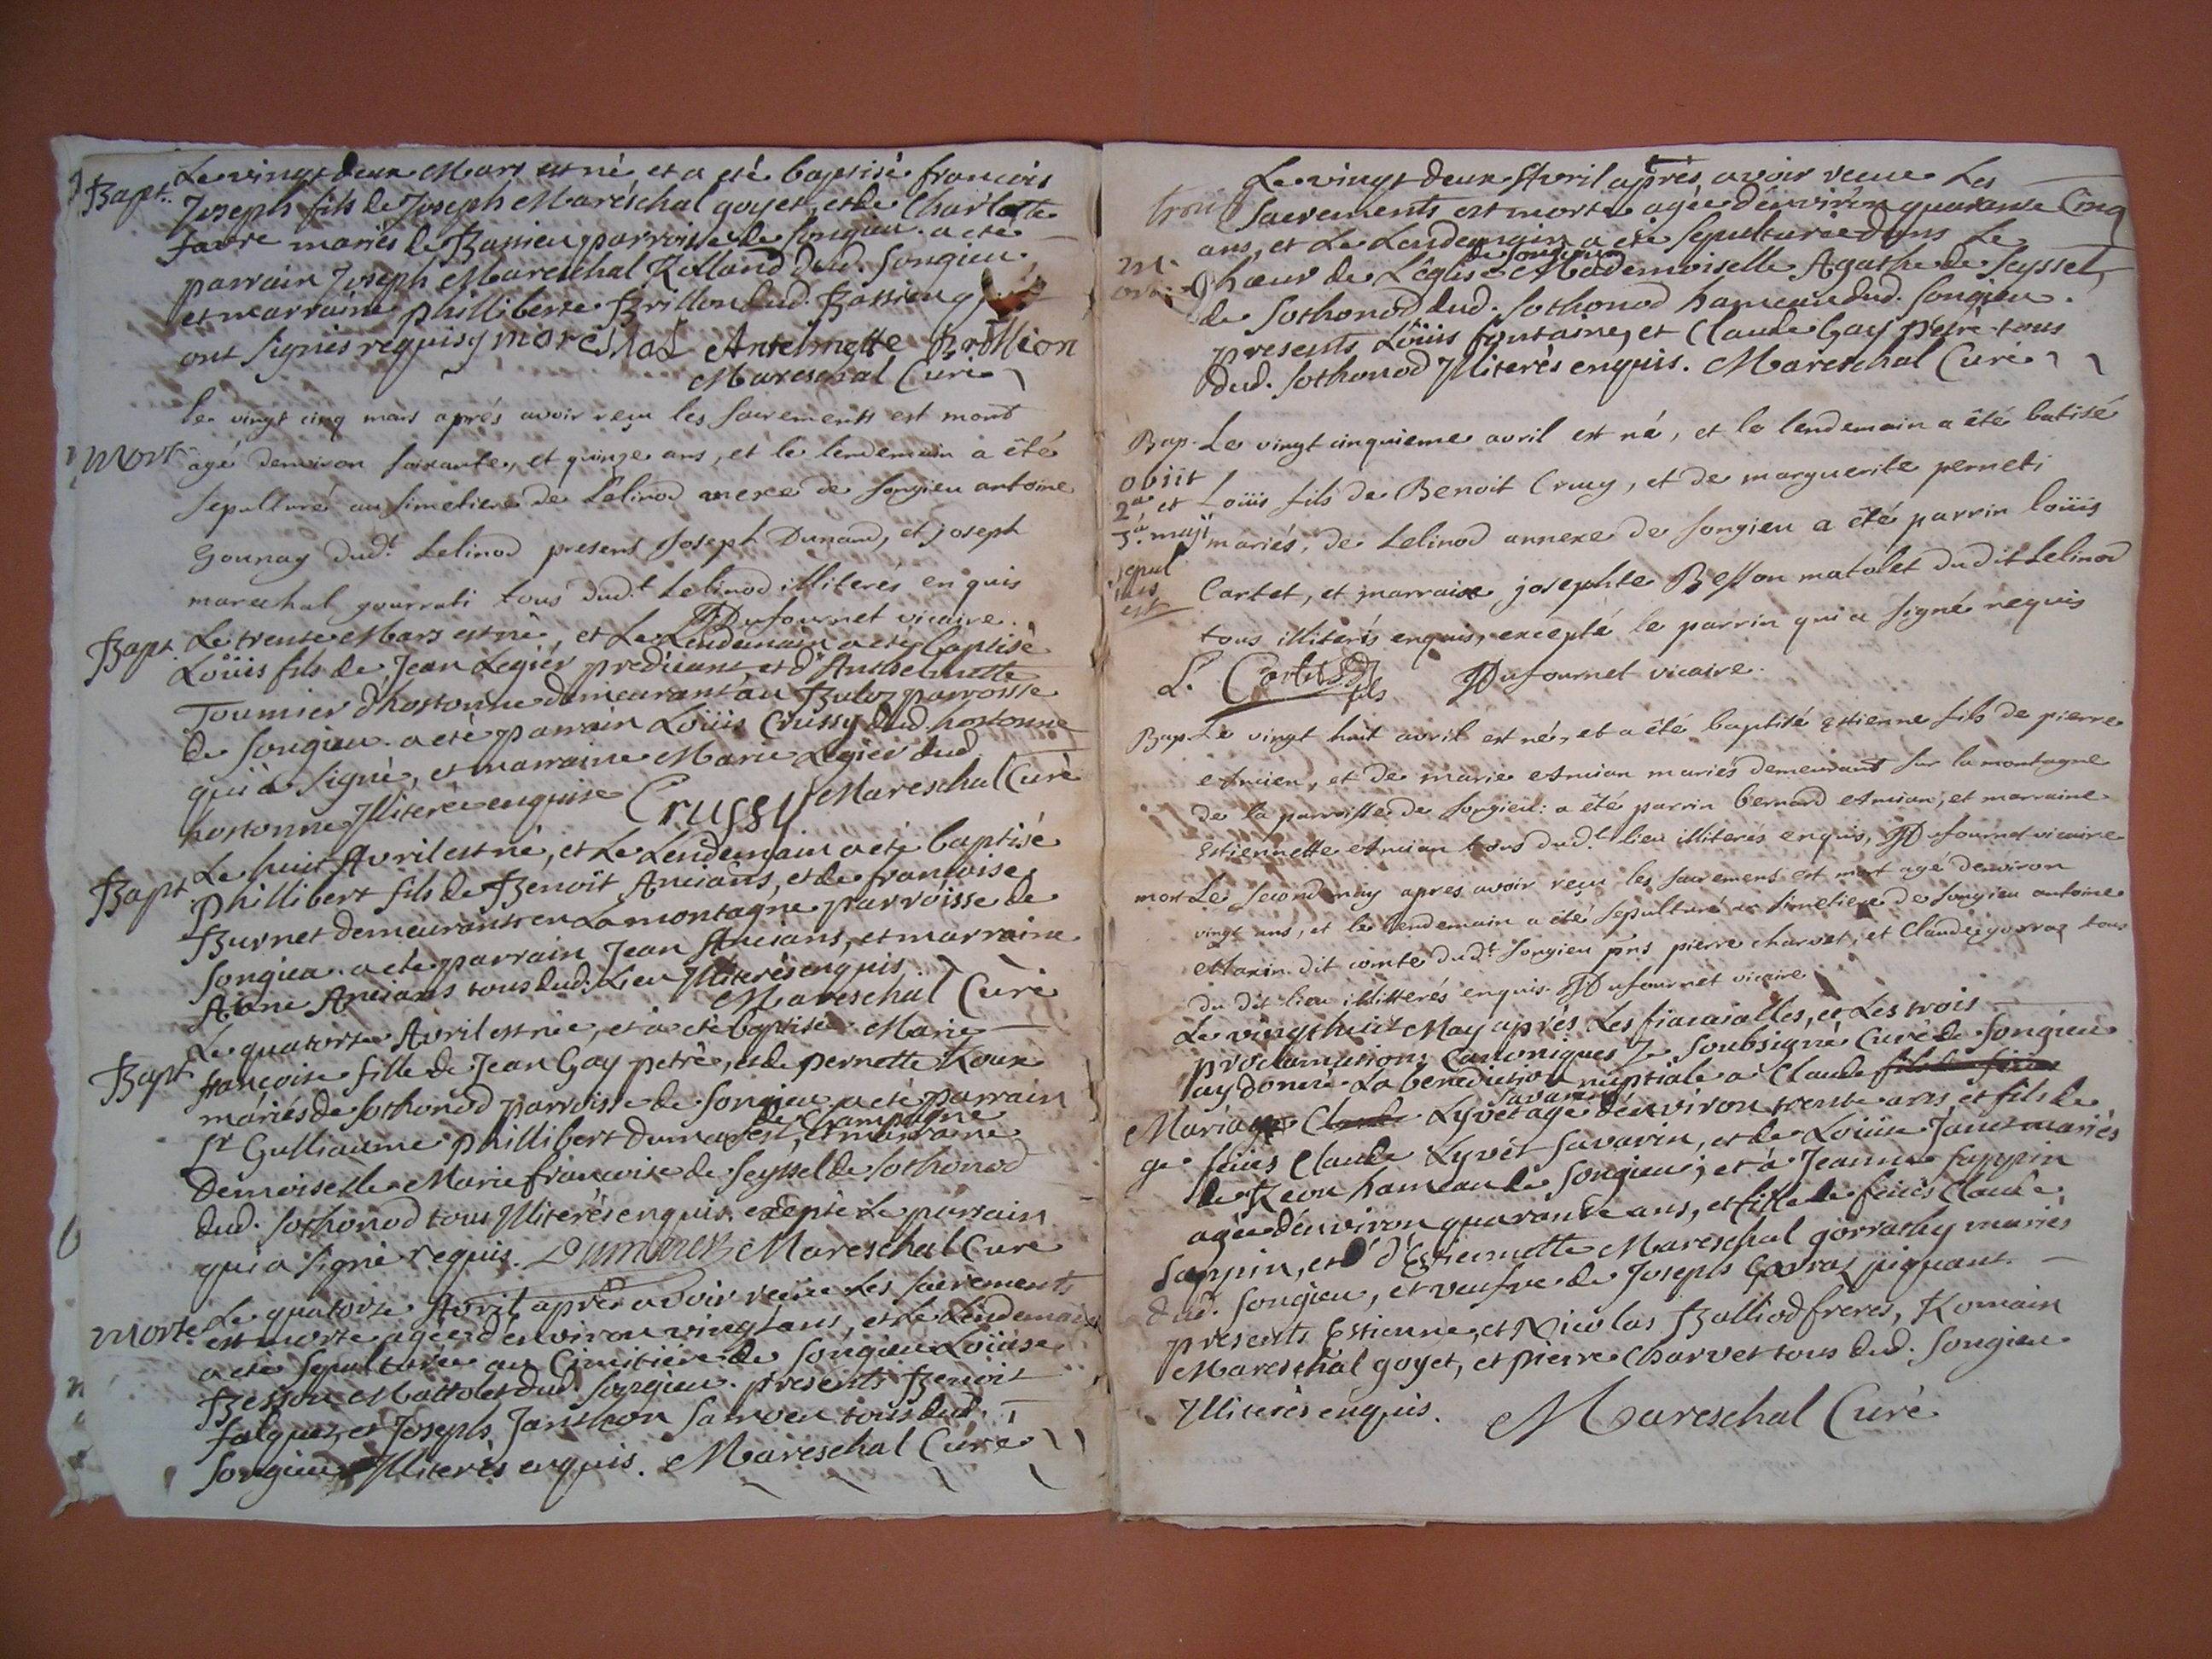 Bapt. Le vingt deux Mars est né et a eté baptisé francois
Joseph fils de Joseph Maréschal goyet, et de Charlotte
favre mariés de Bassieu parroisse de Songieu. a eté
parrain Joseph Mareschal Rolland dud. Songieu.
et marraine philliberte Brillon dud. Bassieu q
ont signés requis j marechal Antelmette Brillion
Mareschal Curé
le vingt cinq mars aprés avoir reçu les sacrements est mort
Mort agé denviron soixante, et quinze ans, et le lendemain a été
sepulturé au simetiere de Lelinod anexe de songieu antoine
Gounay dudt. Lelinod presens Joseph Dunand, et joseph
marechal gourrati tous dudt. Lelinod illiterés enquis
Dufournet vicaire.
Bapt. Le trente Mars est né, et Le Lendemain a eté baptisé
Loüis fils de Jean Legier et d'Anthelmette
Tournier d'hostonne demeurant au parroisse
de Songieu. a eté parrain Loüis Crussy dud. hostonne
qui a signé, et marraine Marie Legier dud.
hostonne Illiterée enquise Crussy Mareschal Curé
Le huit Avril est né, et Le Lendemain a eté baptisé
Bapt. Phillibert fils de Benoit Ancians, et de francoise
Burnet demeurants en La montagne parroisse de
Songieu. a eté parrain Jean Ancians, et marraine
Anne Ancians tous dud. Lieu Illiterés enquis
Mareschal Curé
Le quatorze Avril est née, et a eté baptisée Marie
Bapt. francoise fille de Jean Gay petré, et de pernette Roux
mariés de Sothonod parroisse de Songieu a eté parrain
de Champagne
Sr Gulliaume Phillibert Dumarest, et marraine
Demoiselle Marie francoise de Seyssel de Sothonod
dud. Sothonod tous Illiterés enquis. excepté Le parrain
qui a signé requis. Dumarest Mareschal Curé
Le quatorze Avril aprés avoir reciie Les sacrements
morte est morte agée d'environ vingt ans, et Le Lendemain
a eté sepulturée au Cimitiére de Songieu Loüise
Besson Mattolet dud. Songieu. presents Benoit
falquez, et Joseph Janthon tous dud.
Songieu Illiterés enquis. Mareschal Curé
Le vingt deux Avril aprés avoir recue Les
trois Sacrements est morte agée d'environ quarante Cinq
ans, et Le Lendemain a eté sepulturée dans Le
de Songieu
Chœur de L'église Mademoiselle Agathe de Seyssel
de Sothonod dud. Sothonod hameau dud. Songieu.
presents Loüis fontaine, et Claude Gay petré tous
dud. Sothonod Illiterés enquis. Mareschal Curé
Bap. Le vingt cinquieme avril est né, et le lendemain a été batisé
obiit
2a et Loüis fils de Benoit Crucy, et de marguerite perneti
3a. maji mariés, de Lelinod annexe de songieu a été parrin loüis
sepultus
est Cartet, et marraine josephte Besson matolet dudit Lelinod
tous illiterés enquis, excepté le parrin qui a signé requis
L. Cartet fils Dufournet vicaire.
Bap. Le vingt huit avril est né, et a été baptisé estienne fils de pierre
Ancien, et de marie Ancian mariés demeurant sur la montagne
de la parroisse de songieu: a été parrin bernard Ancian, et marraine
Estiennette Ancian tous dudt. lieu illiterés enquis, Dufournet vicaire
mort Le second may apres avoir reçu les sacremens est mort agé denviron
vingt ans, et le lendemain a été sepulturé au simetiere de songieu antoine
Maxin dit comte dudt. songieu pns pierre charvet, et Claude gorraz tous
du dit lieu illitterés enquis Dufournet vicaire
Le vingt huit May aprés Les fiancailles, et Les trois
proclamations Canoniques Je soubsigné Curé de Songieu
ay donné La benediction nuptiale a Claude fils de feu
Savarin
Mariage Claude Lyvet agé d'environ trente ans et fils de
feües Claude Lyvet Savarin, et de Loüise Janet mariés
de hameau de Songieu; et a Jeanne Sappin
agée d'environ quarante ans, et fille de feües Claude
Sappin, et d'Estiennette Mareschal gorrathy mariés
dud. Songieu, et veufve de Joseph Gorraz
presents Estienne, et Nicolas Balliod freres, Romain
Mareschal goyet, et Pierre Charvet tous dud. Songieu
Illiterés enquis. Mareschal Curé